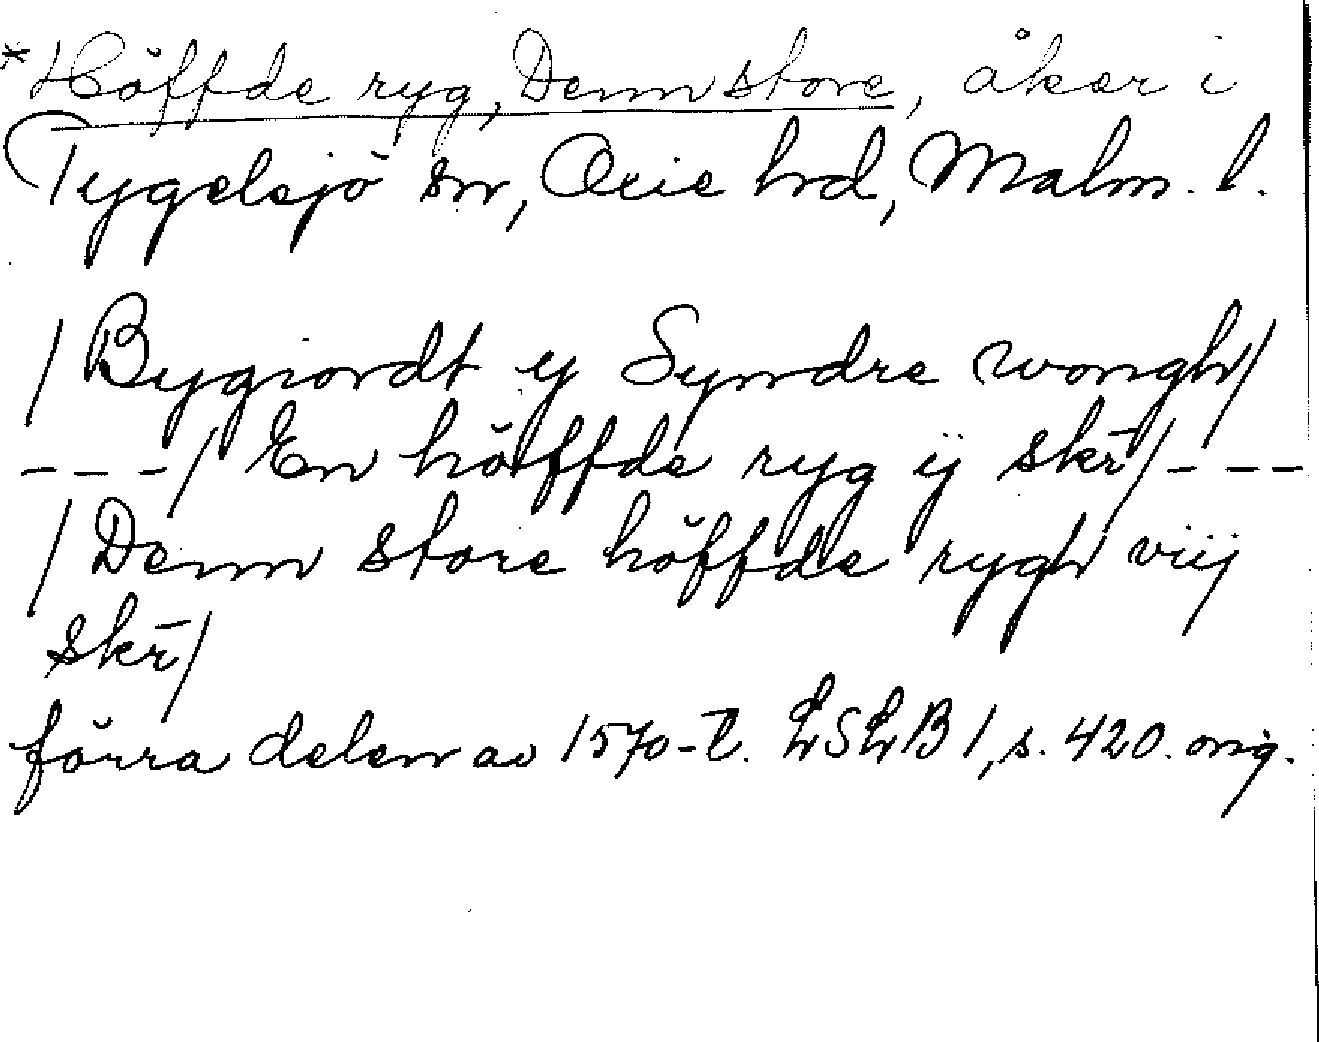 *Höffde ryg, Denn store, åker i
Tygelsjö sn, Oxie hd, Malm. l.
/Bygiordt y Syndre wongh/
---/ En höffde ryg ÿ skr̄/---
/Denn store höffde rygh viij
skr̄/
förra delen av 1570-t. LSLB 1, s. 420. orig.